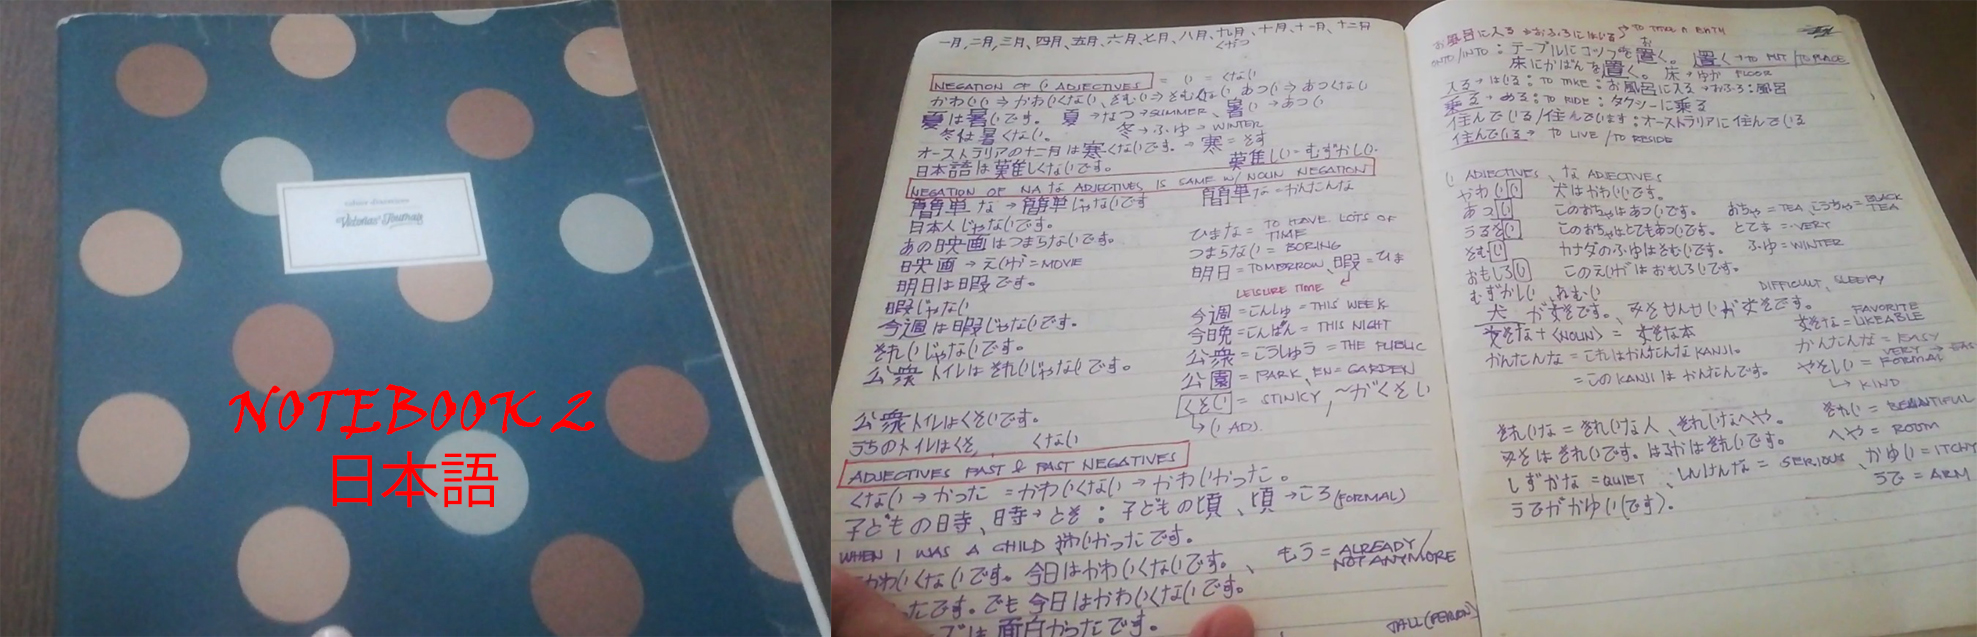 Victoria's Journals
NOTEBOOK 2
日本語
一月、二月、三月、四月、五月、六月、七月、八月、九月、十月、十一月、十二月
くがつ
NEGATION OF い ADJECTIVES = い = くない
かわいい→かわいくない、さむい→さむくない、あつい→あつくない
夏は暑いです。 夏→なつ→SUMMER、暑い→あつい
冬は暑くない。 冬→ふゆ→WINTER
オーストラリアの十二月は寒くないです。→寒=さす
日本語は難しくないです。 難しい=むずかしい。
NEGATION OF NA な ADJECTIVES IS SAME W/ NOUN NEGATION
簡単な→簡単じゃないです 簡単な=かんたんな
日本人じゃないです。
あの映画はつまらないです。
映画→えいが=MOVIE
明日は暇です。
暇じゃない
今週は暇じゃないです。
きれいじゃないです。
公衆トイレはきれいじゃないです。
ひまな= TO HAVE LOTS OF TIME
つまらない=BORING
明日=TOMORROW、暇=ひま
LEISURE TIME
今週=こんしゅ=THIS WEEK
今日晩=こんばん=THIS NIGHT
公衆=こうしゅう=THE PUBLIC
公園=PARK, EN=GARDEN
くさい= STINKY, ~がくさい
い ADJ.
公衆トイレはくさいです。
うちのトイレはくさ くない
ADJECTIVES PAST & PAST NEGATIVES
くない→かった =かわいくない→かわいかった。
子どもの時、時→とき:子どもの頃、頃→ころ(FORMAL)
WHEN I WAS A CHILD かわいかったです。
かわいくないです。今日はかわいくないです。 もう= ALREADY/
NOT ANYMORE
ったです。でも今日はかわいくないです。
は面白かったです。
TALL (PERSON)
お風呂に入る おふろにはいる→TO TAKE A BATH
INTO/INTO:テーブルにコップを置く。 置く→TO PUT/TO PLACE
床にかばんを置く。床→ゆか FLOOR
入る→はいる:TO TAKE:お風呂に入る→おふろ:風呂
乗る→のる:TO RIDE:タクシーに乗る
住んでいる/住んでいます:オーストラリアに住んでいる
住んでいる→ TO LIVE / TO RESIDE
い ADJECTIVES、な ADJECTIVES
かわいい 犬はかわいいです。
あつい このおちゃはあついです。 おちゃ=TEA、こうちゃ=BLACK TEA
うるさい このおちゃはとてもあついです。 とても=VERY
さむい カナダのふゆはさむいです。 ふゆ=WINTER
おもしろい このえいがはおもしろいです。
むずかしい、ねむい DIFFICULT, SLEEPY
犬が好きです。
好きな+(NOUN) = 好きな本 好きな= FAVORITE LIKEABLE
かんたんな=これはかんたんなKANJI。 かんたんな=EASY
=このKANJIはかんたんです。 やさしい= VERY FORMAL → EAS
KIND
きれいな=きれいな人、きれいなへや。 きれい=BEAUTIFUL
みきはきれいです。はるかはきれいです。 へや=ROOM
しずかな=QUIET しんけんな= SERIOUS、かゆい=ITCHY
うでがかゆい(です)。 うで=ARM